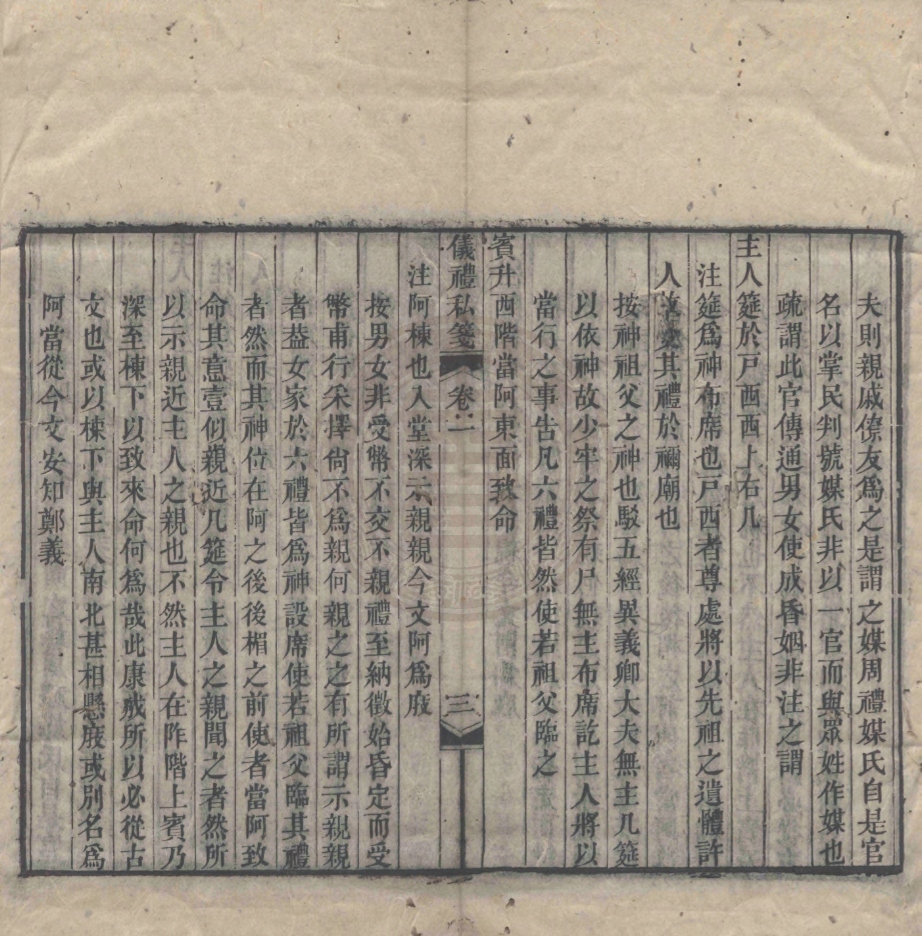 夫則親戚僚友爲之是謂之媒周禮媒氏自是官
名以掌民判號媒氏非以一官而與眾姓作媒也
疏謂此官傳通男女使成昏姻非注之謂
主人筵於戸西西上右几
注筵爲神布席也戸西者尊處將以先祖之遺體許
人故受其禮於禰廟也
按神祖父之神也駮五經異義卿大夫無主几筵
以依神故少牢之祭有尸無主布席訖主人將以
當行之事告凡六禮皆然使若祖父臨之
賓升西階當阿東面致命
儀禮私箋 卷一 三
注阿棟也入堂深示親親今文阿爲庪
按男女非受幣不交不親禮至納徵始昏定而受
幣甫行采擇尙不爲親何親之之有所謂示親親
者葢女家於六禮皆爲神設席使若祖父臨其禮
者然而其神位在阿之後後楣之前使者當阿致
命其意壹似親近几筵令主人之親聞之者然所
以示親近主人之親也不然主人在阼階上賓乃
深至棟下以致來命何爲哉此康成所以必從古
文也或以棟下與主人南北甚相懸庪或別名爲
阿當從今文安知鄭義